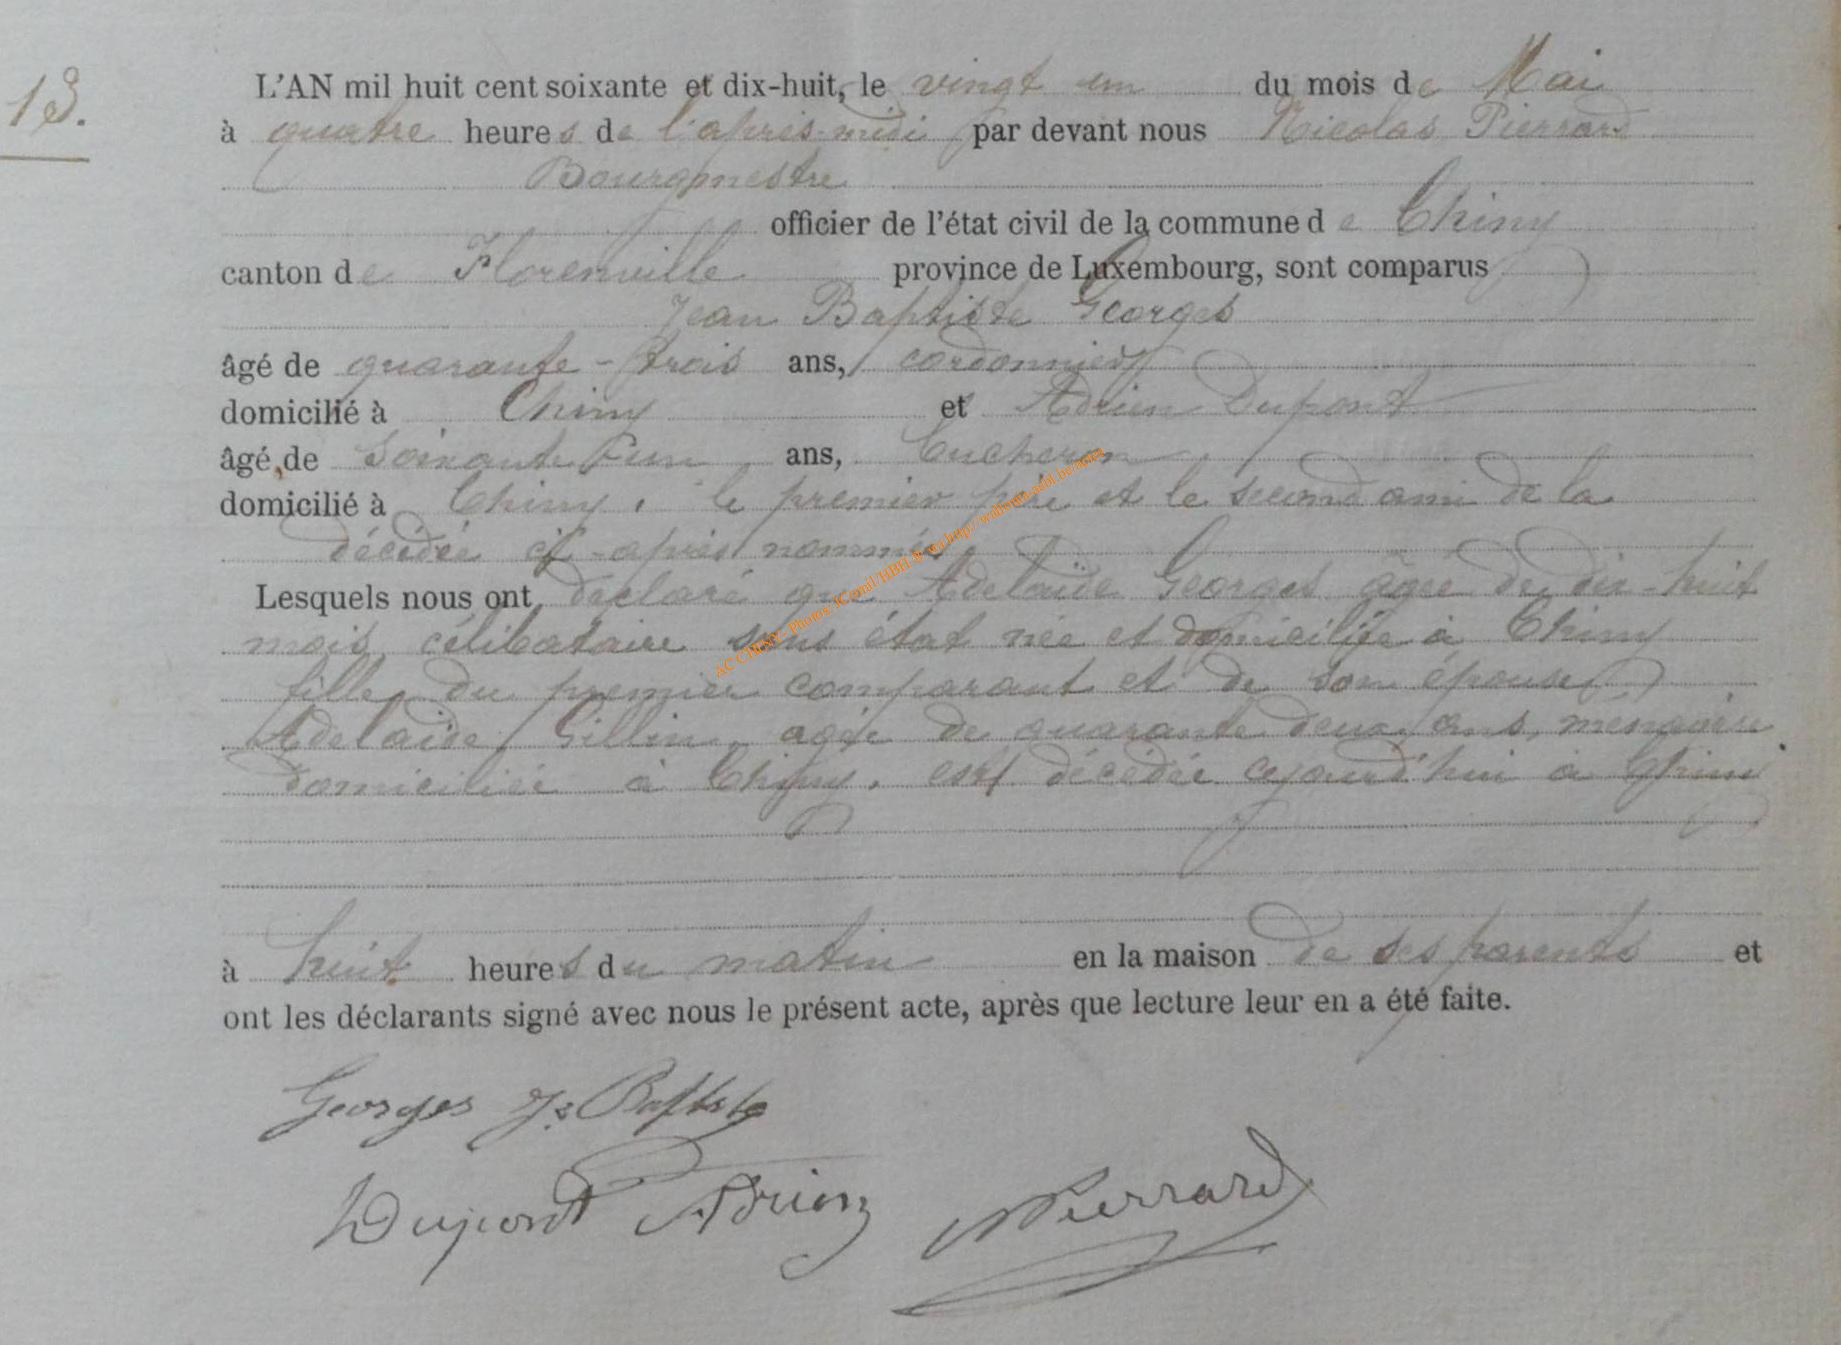 13.
L'AN mil huit cent soixante et dix-huit, le vingt un du mois de Mai
à quatre heures de l'après-midi par devant nous Nicolas Pierrard
Bourgmestre
officier de l'état civil de la commune de Chiny
canton de Florenville province de Luxembourg, sont comparus
Jean Baptiste Georges
âgé de quarante-trois ans, cordonnier
domicilié à Chiny et Adrien Dupont
âgé de Soixante un ans, bucheron
domicilié à Chiny, le premier père et le second ami de la
décédée ci-après nommée
Lesquels nous ont déclaré que Adelaïde Georges âgée de dix-huit
mois, célibataire sans état née et domiciliée à Chiny
fille du premier comparant et de son épouse
Adelaïde Gillin, agée de quarante deux ans, ménagère
domiciliée à Chiny, est décédée cejourd'hui à Chiny
à huit heures du matin en la maison de ses parents et
ont les déclarants signé avec nous le présent acte, après que lecture leur en a été faite.
Georges Js Baptiste
Dupont Adrien NPierrard
AC CHINY- Photos